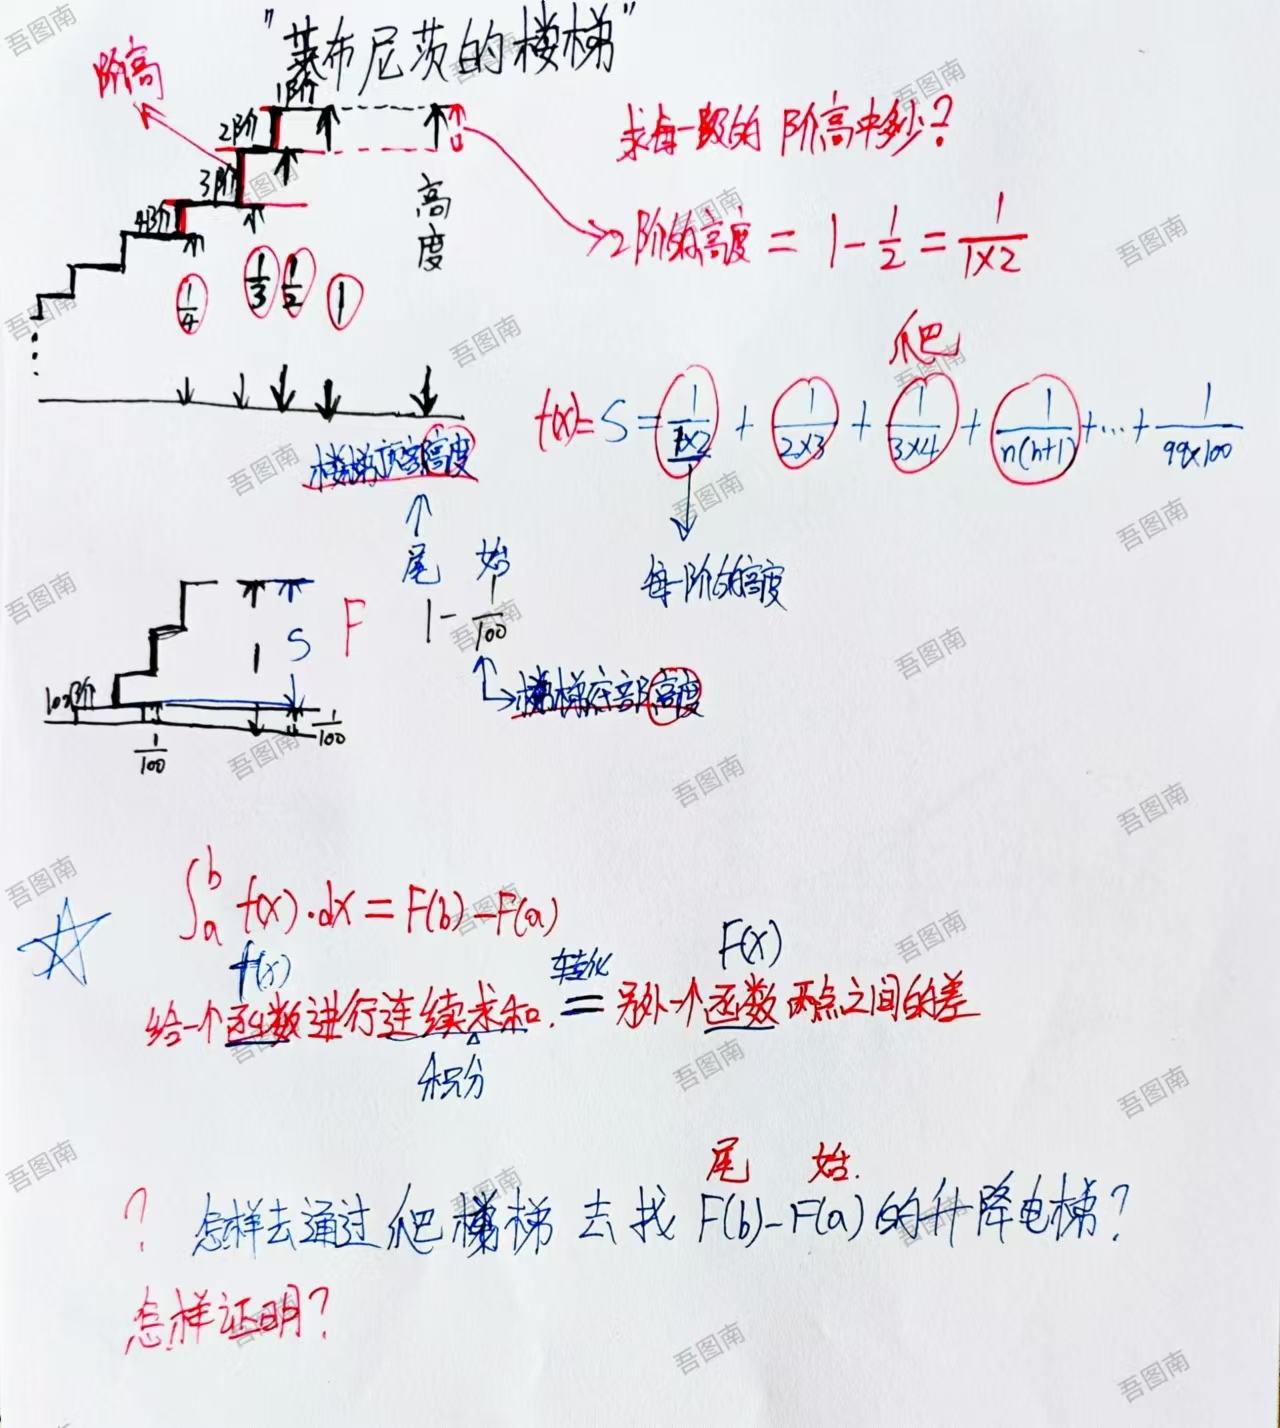 "莱布尼茨的楼梯"
阶高
1阶
2阶
3阶
4阶
高度
1/4
1/3
1/2
1
楼梯顶部高度
求每一级的阶高中多少?
2阶的高度 = 1 - 1/2 = 1/(1×2)
爬
f(x) = S = 1/(1×2) + 1/(2×3) + 1/(3×4) + 1/(n(n+1)) + … + 1/(99×100)
每一阶的高度
尾 始
1 - 1/100
楼梯底部高度
100阶
1
S
F
1/100
1/100
∫_a^b f(x)·dx = F(b) - F(a)
f(x)
转化
F(x)
给一个函数进行连续求和. = 另外一个函数两点之间的差
积分
尾 始.
? 怎样去通过爬楼梯去找 F(b) - F(a) 的升降电梯?
怎样证明?
吾图南